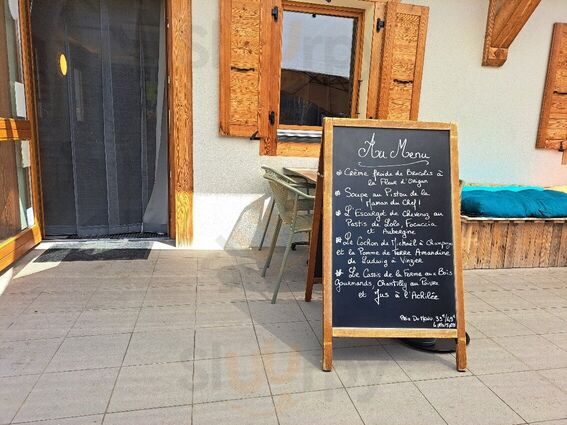 Au Menu
* Crème froide de Brocolis à
la Fleur d'Origan
* Soupe au Pistou de la
Maman du Chef !
* L'Escargot de Chevenoz au
Pastis de Lolo, Focaccia
et Aubergine
* Le Cochon de Michaël à Champanges
et la Pomme de Terre Amandine
de Ludwig à Vinzier
* Le Cassis de la Ferme aux Bois
Gourmands, Chantilly au Poivre
et Jus à l'Achilée
Prix Du Menu 33€/49€
sluurpy
sluurpy